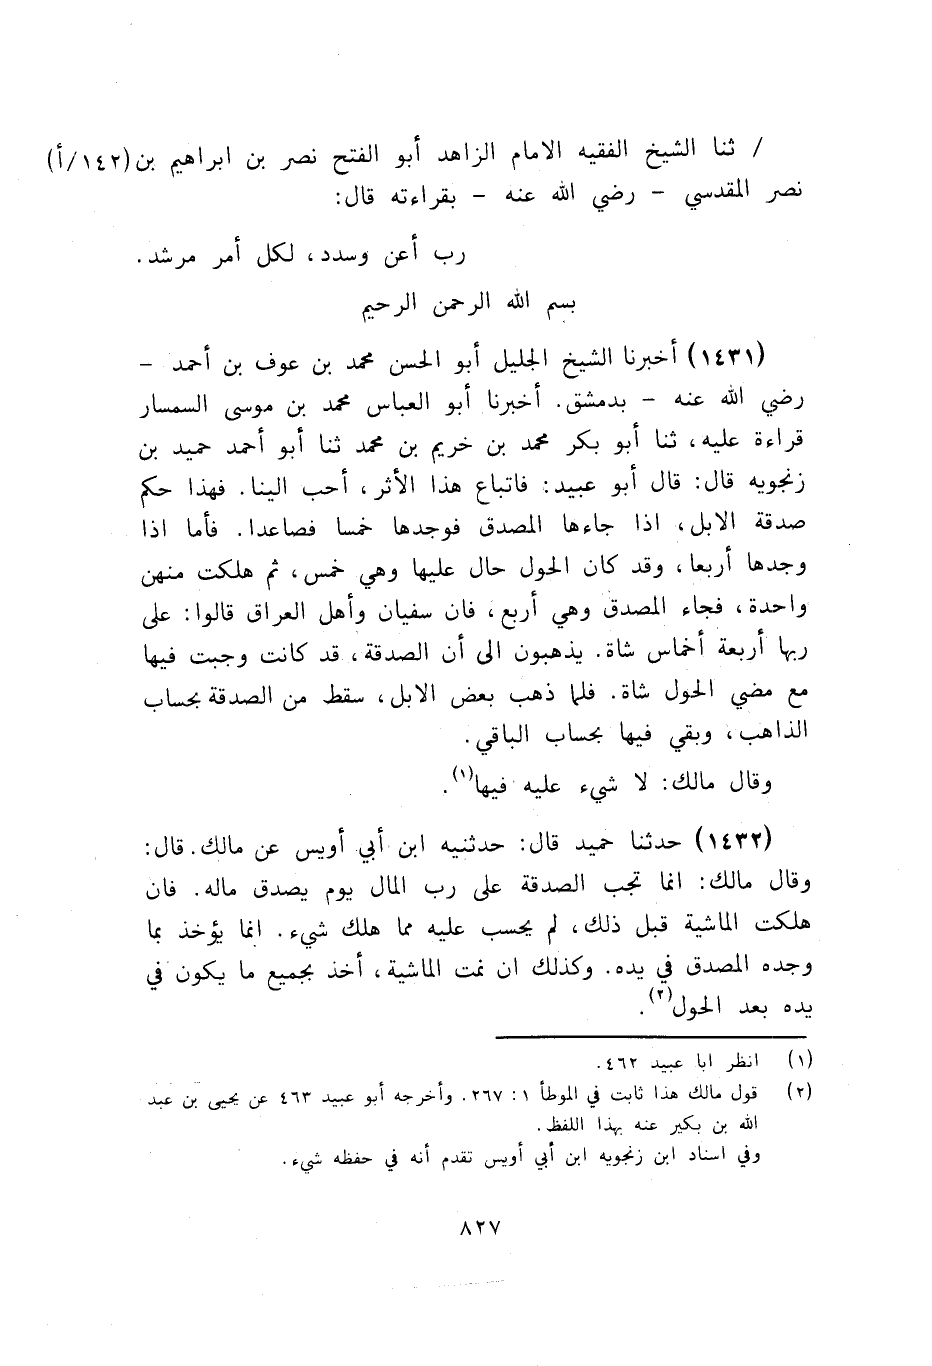 / ثنا الشيخ الفقيه الامام الزاهد أبو الفتح نصر بن ابراهيم بن (١٤٢/أ)
نصر المقدسي - رضي الله عنه - بقراءته قال:
رب أعن وسدد، لكل أمر مرشد.
بسم الله الرحمن الرحيم
(١٤٣١) أخبرنا الشيخ الجليل أبو الحسن محمد بن عوف بن أحمد -
رضي الله عنه - بدمشق. أخبرنا أبو العباس محمد بن موسى السمسار
قراءة عليه، ثنا أبو بكر محمد بن خريم بن محمد ثنا أبو أحمد حميد بن
زنجويه قال: قال أبو عبيد: فاتباع هذا الأثر، أحب الينا. فهذا حكم
صدقة الابل، اذا جاءها المصدق فوجدها خمسا فصاعدا. فأما اذا
وجدها أربعا، وقد كان الحول حال عليها وهي خمس، ثم هلكت منهن
واحدة، فجاء المصدق وهي أربع، فان سفيان وأهل العراق قالوا: على
ربها أربعة أخماس شاة. يذهبون الى أن الصدقة، قد كانت وجبت فيها
مع مضي الحول شاة. فلما ذهب بعض الابل، سقط من الصدقة بحساب
الذاهب، وبقي فيها بحساب الباقي.
وقال مالك: لا شيء عليه فيها(١).
(١٤٣٢) حدثنا حميد قال: حدثنيه ابن أبي أويس عن مالك. قال:
وقال مالك: انما تجب الصدقة على رب المال يوم يصدق ماله. فان
هلكت الماشية قبل ذلك، لم يحسب عليه مما هلك شيء. انما يؤخذ بما
وجده المصدق في يده. وكذلك ان نمت الماشية، أخذ بجميع ما يكون في
يده بعد الحول(٢).
(١) انظر ابا عبيد ٤٦٢.
(٢) قول مالك هذا ثابت في الموطأ ١: ٢٦٧. وأخرجه أبو عبيد ٤٦٣ عن يحيى بن عبد
الله بن بكير عنه بهذا اللفظ.
وفي اسناد ابن زنجويه ابن أبي أويس تقدم أنه في حفظه شيء.
٨٢٧